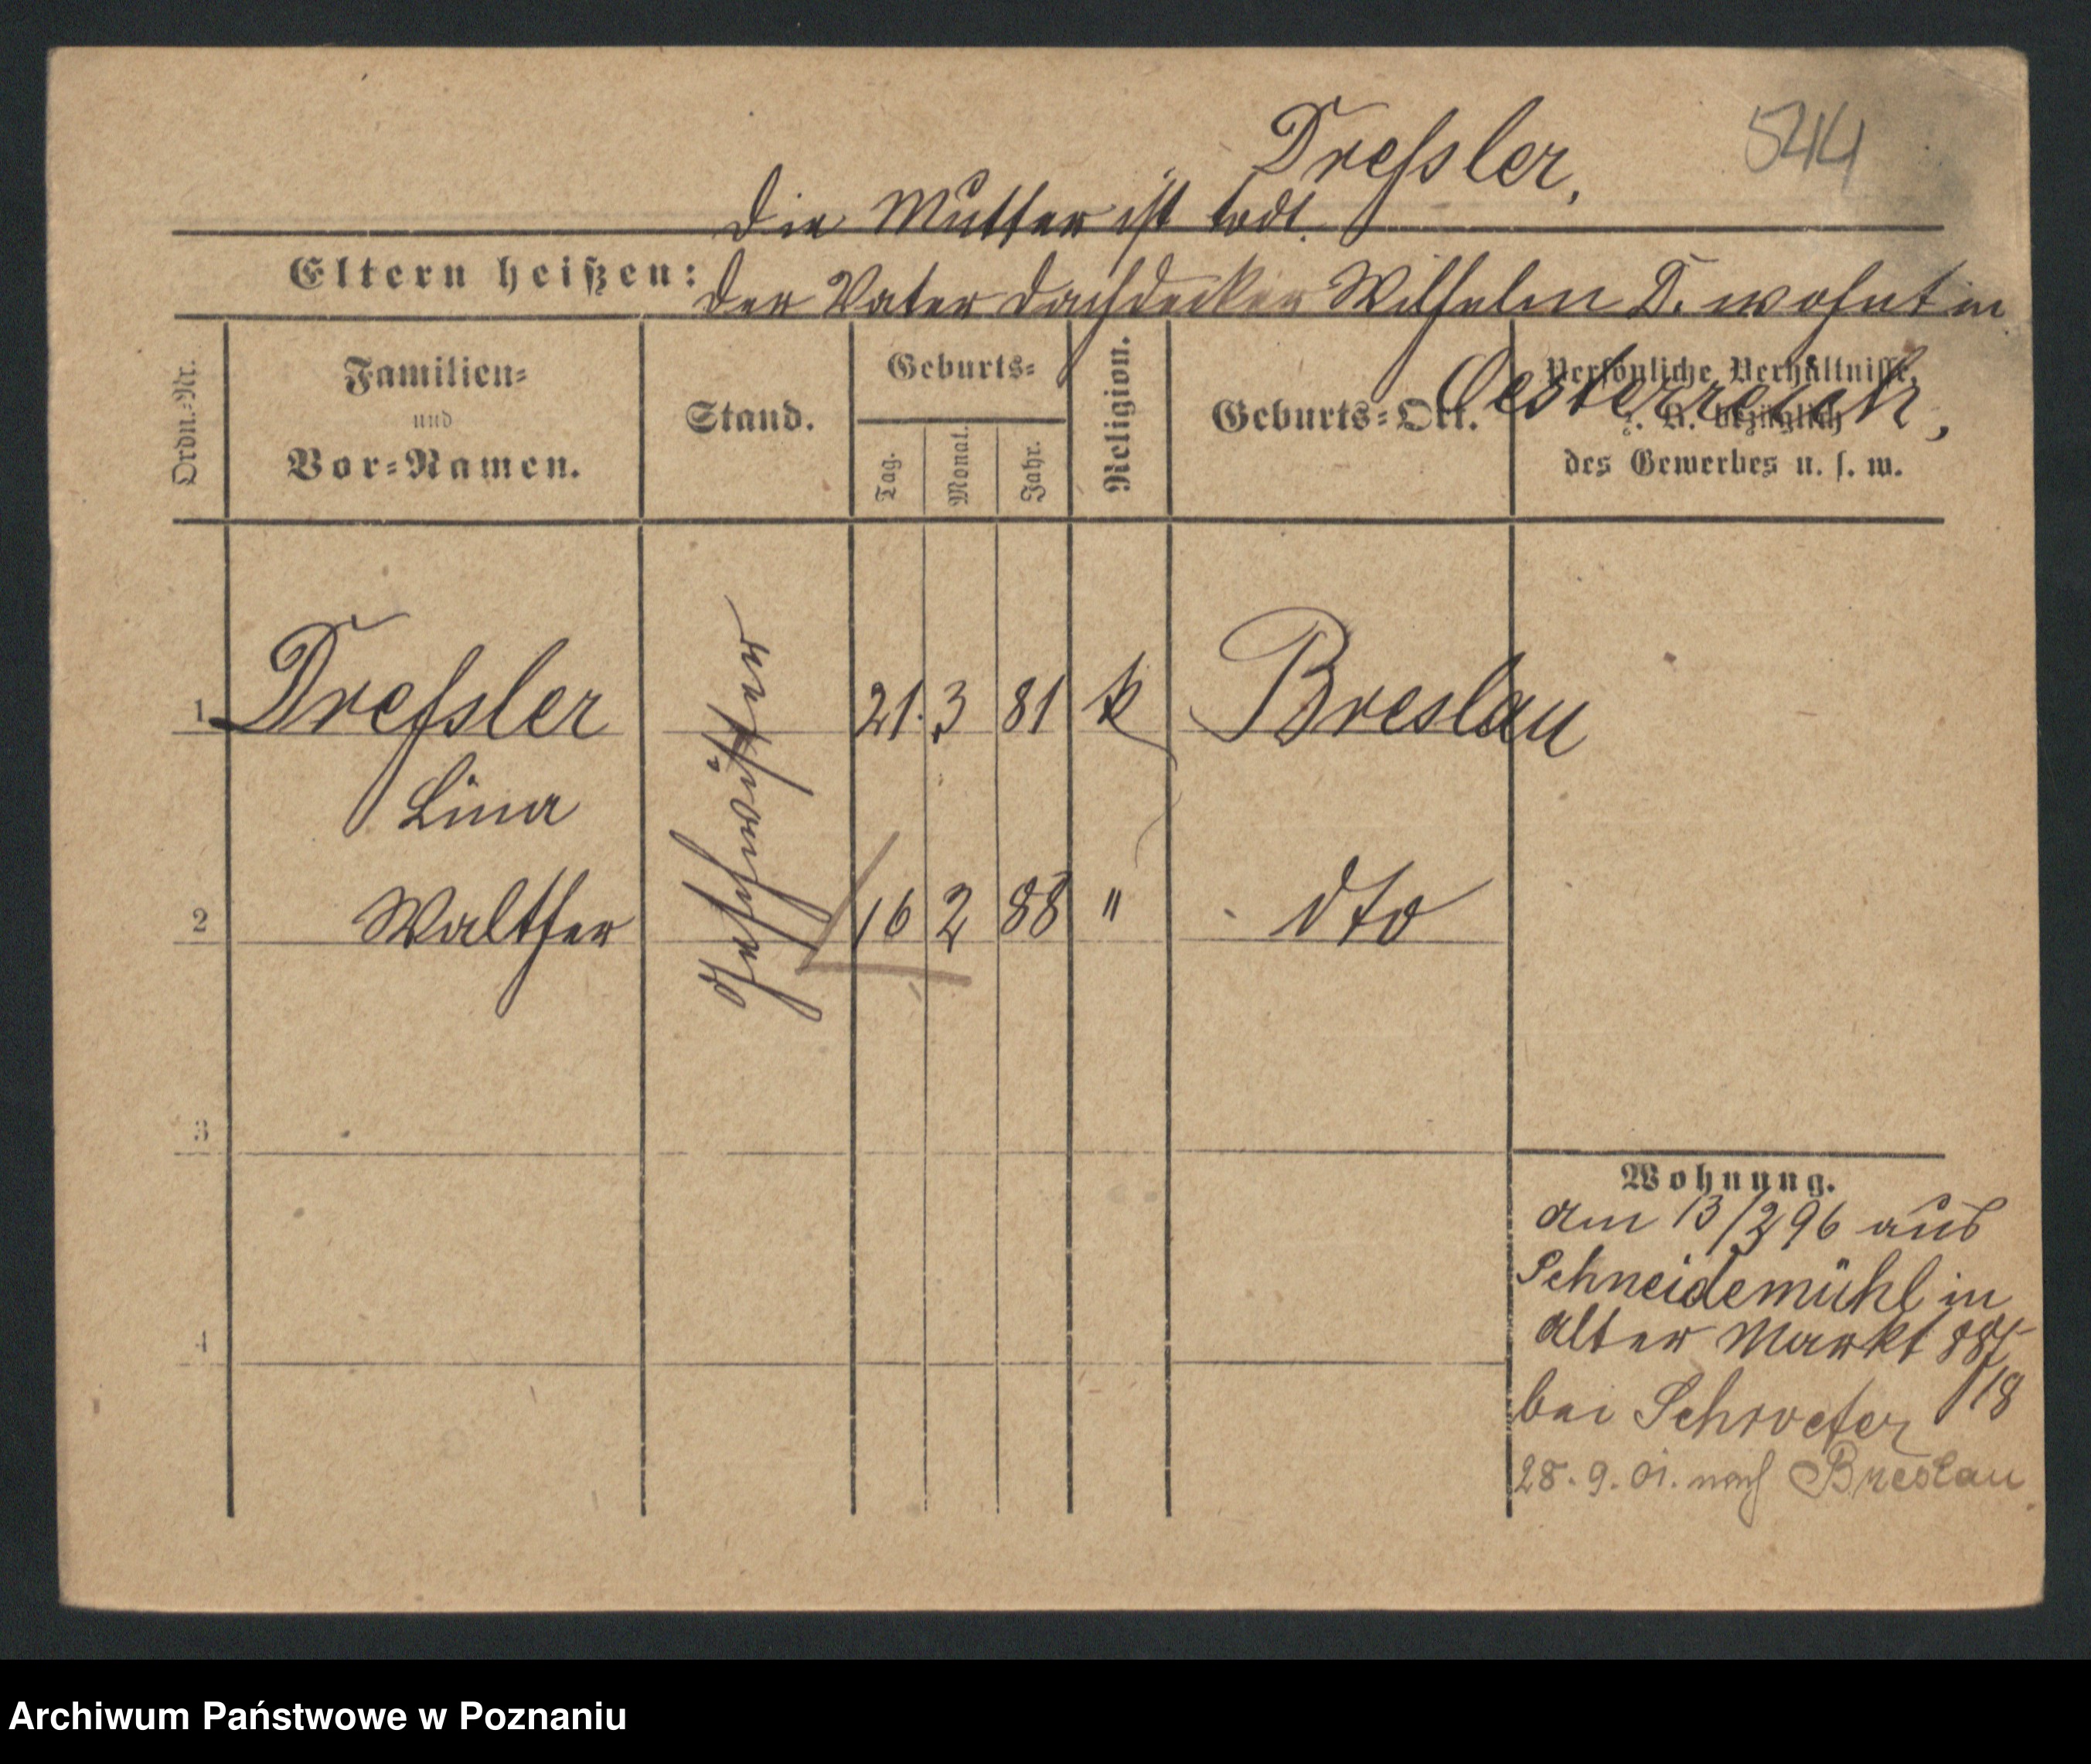 544
Dreſsler,
Die Mutter ist todt.
Eltern heißen: Der Vater Dachdecker Wilhelm D. wohnt in
Oesterreich,
Ordn.-Nr.
Familien-
und
Vor-Namen.
Stand.
Geburts-
Tag.
Monat.
Jahr.
Religion.
Geburts-Ort.
Persönliche Verhältnisse,
z. B. bezüglich
des Gewerbes u. s. w.
1 Dreſsler 21. 3 81 k Breslau
Lina
Geschwister
2 Walther 16 2 88 " dto
3
4
Wohnung.
am 13/2 96 aus
Schneidemühl in
Alter Markt 88/
18
bei Schroeter
28. 9. 01. nach Breslau.
Archiwum Państwowe w Poznaniu